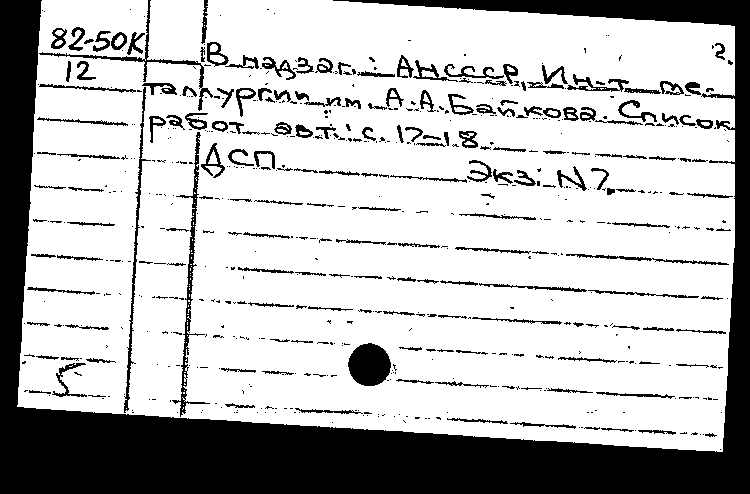 2.
82-50К
12
В надзаг.: АНСССР, Ин-т ме-
таллургии им. А.А.Байкова. Список
работ авт.: с. 17-18.
ДСП. Экз: N7.
5